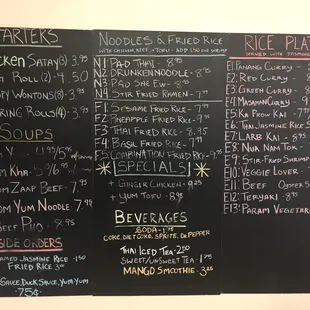 STARTERS
CHICKEN SATAY(3) 3.95
ROLL(2) - 4.50
WONTONS(8) 3.95
SPRING ROLLS(4) - 3.95
SOUPS
YUM
KHA
YUM ZAAP BEEF - 7.95
YUM YUM NOODLE 7.95
BEEF PHO - 8.95
SIDE ORDERS
STEAMED JASMINE RICE 1.50
FRIED RICE 3.00
SAUCE, DUCK SAUCE, YUM YUM
75¢
NOODLES & FRIED RICE
N1 PAD THAI - 8.95
N2 DRUNKEN NOODLE - 8.95
N3 PAD SAE EW - 8.95
N4 STIR FRIED RAMEN
F1 SESAME FRIED RICE
F2 PINEAPPLE FRIED RICE
F3 THAI FRIED RICE - 8.95
F4 BASIL FRIED RICE
F5 COMBINATION FRIED RICE - 9.95
SPECIALS
+ GINGER CHICKEN - 9.25
+ YUM TOFU - 8.95
BEVERAGES
SODA - 1.75
COKE, DIET COKE, SPRITE, DR. PEPPER
THAI ICED TEA - 2.50
SWEET/UNSWEET TEA - 1.75
MANGO SMOOTHIE - 3.25
RICE PLA
SERVED WITH JASMINE
E1 PANANG CURRY
E2. RED CURRY - 8
E3 GREEN CURRY - 8
E4 MASAMAN CURRY
E5 KA PROW KAI
E6. THAI JASMINE RICE
E7 LARB KAI - 8
E8 NUA NAM TOK
E9. STIR-FRIED SHRIMP
E10 VEGGIE LOVER
E11 BEEF
E12 TERIYAKI - 8
E13: PARAM VEGETAR